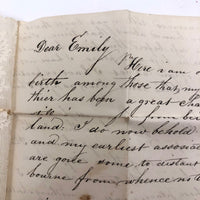 Dear Emily
Here I am
birth among those that my
thier has been a great cha
from bein
land. I do now behold
and my earliest associat
are gone some to distant
bourne from whence no t